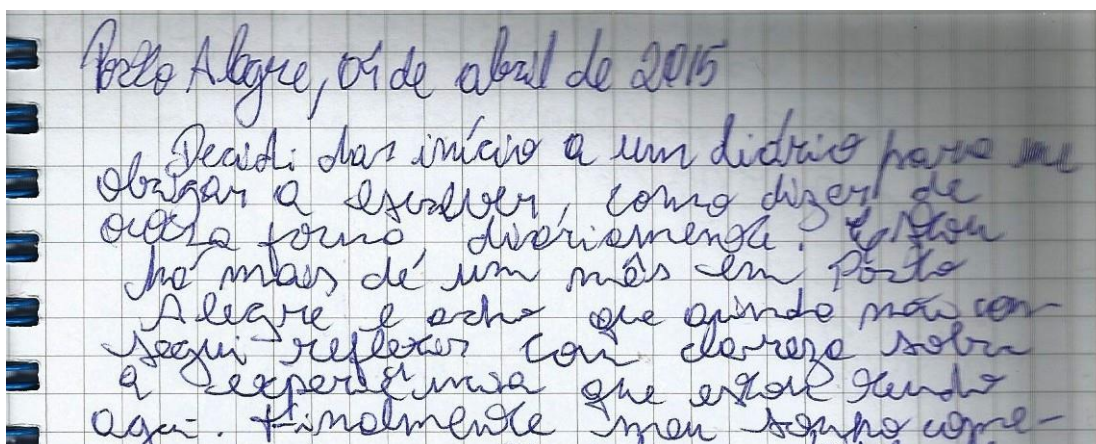 Porto Alegre, 04 de abril de 2015
Decidi dar início a um diário para me
obrigar a escrever, como dizer de
outra forma, diariamente? Estou
há mais de um mês em Porto
Alegre e acho que ainda não con-
segui refletir com clareza sobre
a experiência que estou tendo
aqui. Finalmente meu sonho come-